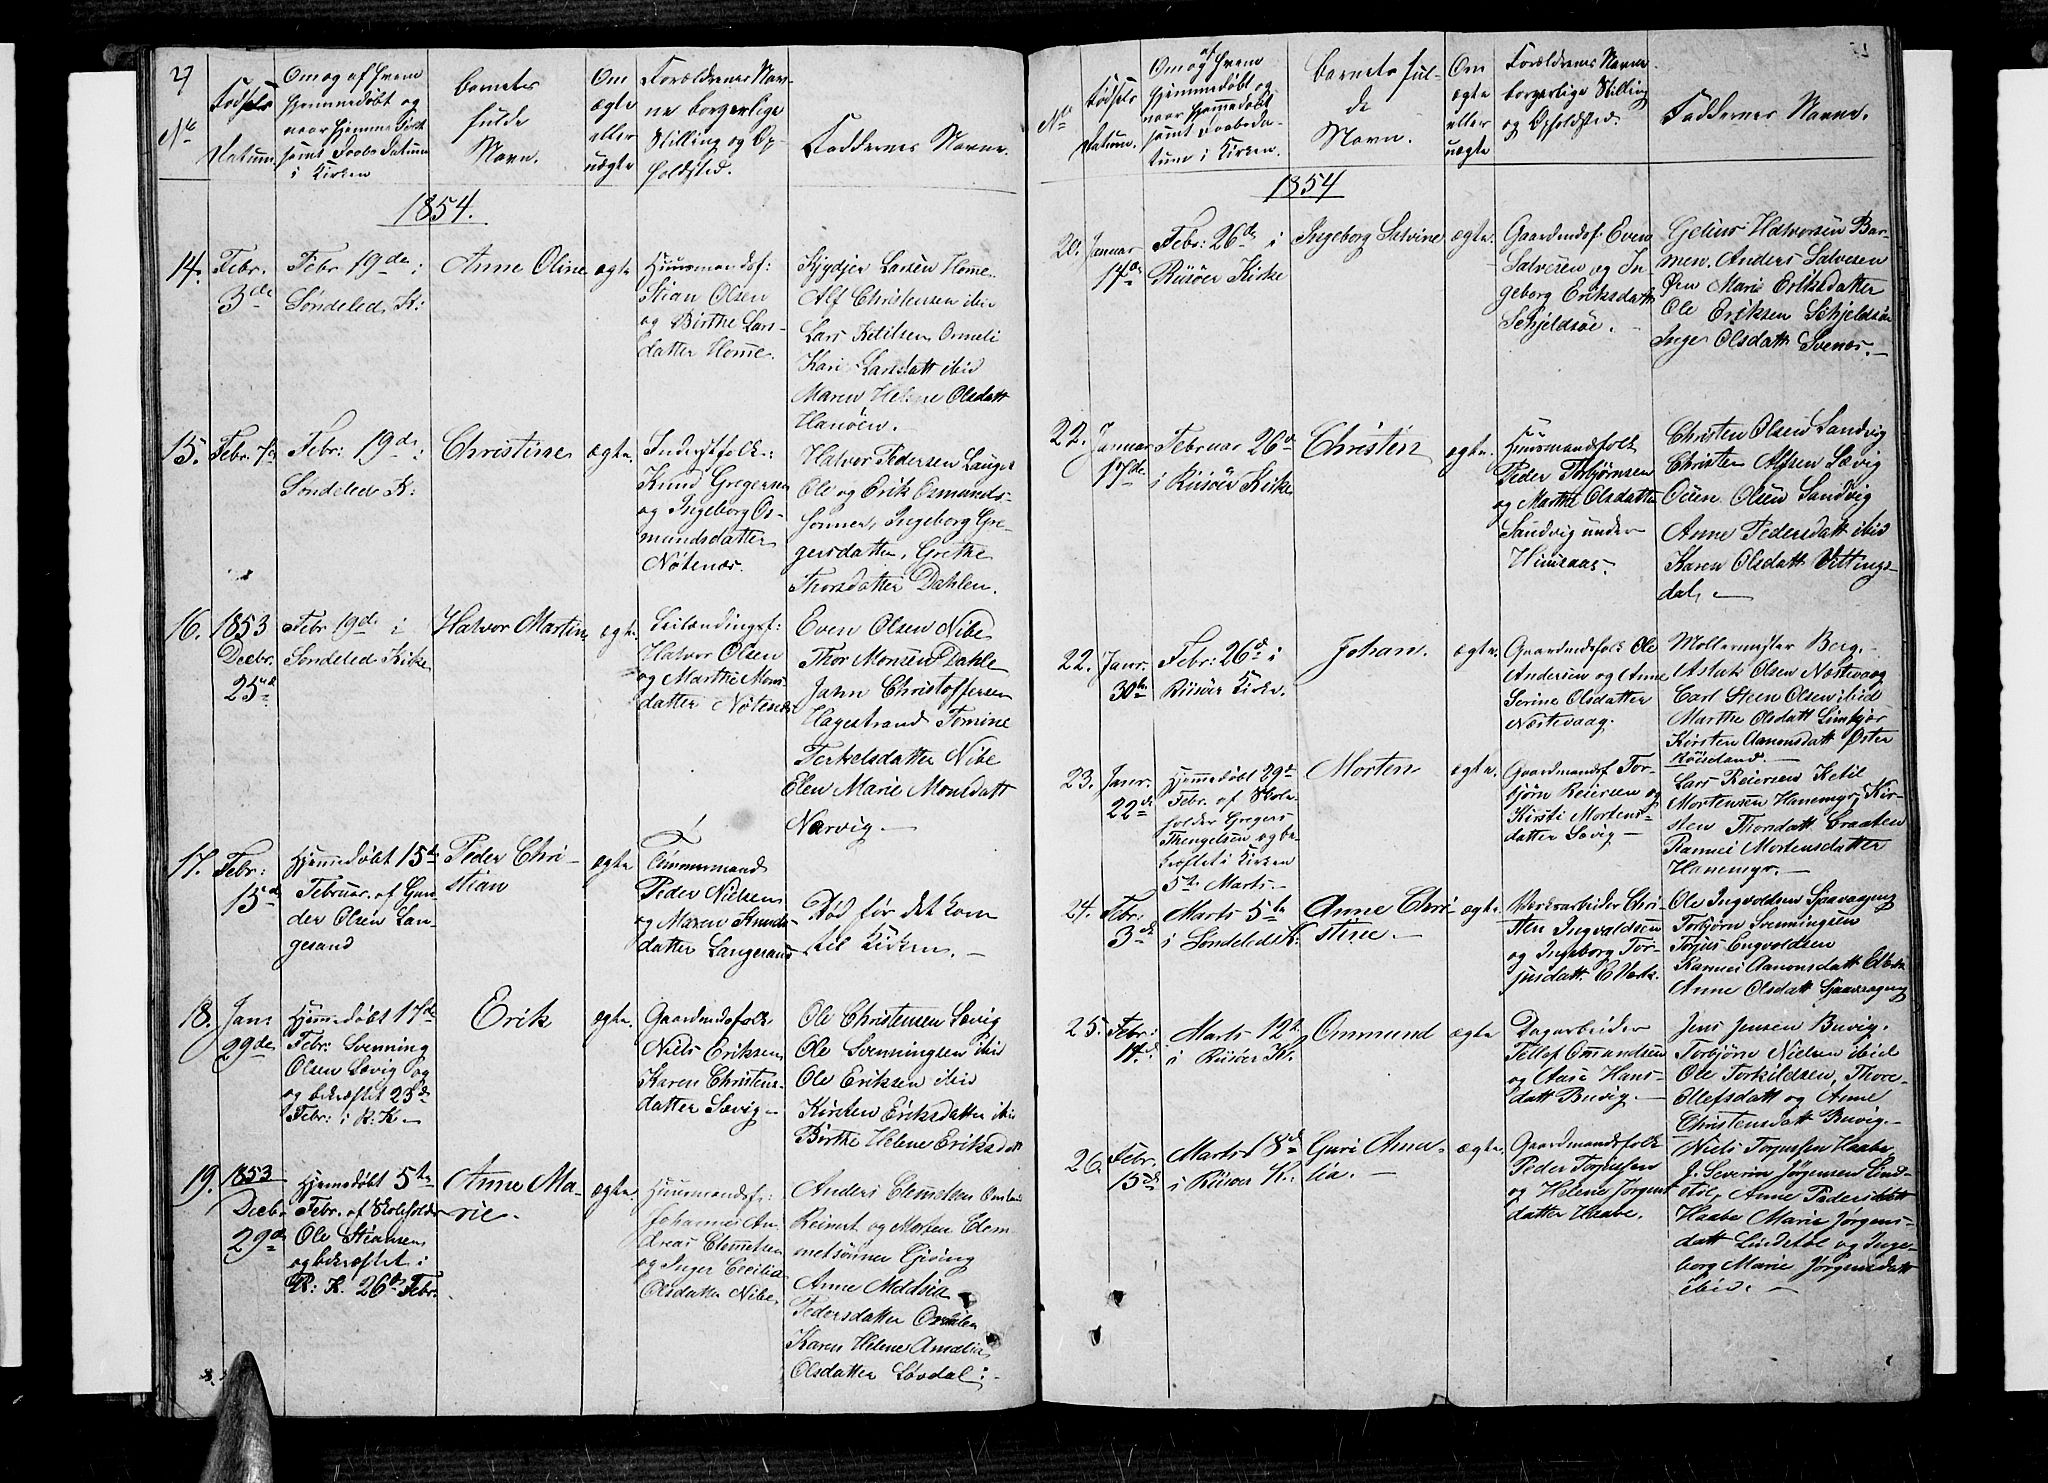 27
No
Fødsels
Datum.
Om og af hvem
hjemmedøbt og
naar hjemme Døbt
samt Daabs Datum
i Kirken
barnets
fulde
Navn.
Om
ægte
eller
uægte
Forældrenes Nav-
ne borgerlige
Stilling og Op-
holdsted.
Faddernes Navne.
1854.
14.
Febr.
3de
Febr 19de i
Søndeled K:
Anne Oline
ægte
Huusmandsf:
Stian Olsen
og Birthe Lars-
datter Home.
Larsen Home.
Alf Christensen ibid
Lars Ketilsen
Kari Larsdatt ibid
Maren Helene Olsdatt
Hanøen.
15.
Febr.
Febr: 19de i
Søndeled K:
Christine
ægte.
Inderstfolk:
Knud Gregersen
og Ingeborg Os-
mundsdatter
Nøtenæs.
Halvor Pedersen
Ole og Erik Osmunds-
sønner, Ingeborg Gre-
gersdatter, Grethe
Thorsdatter Dahlen.
16.
1853
Decbr.
25de
Febr 19de i
Søndeled Kirke
Halvor Martin
ægte
Leilændingsf:
Halvor Olsen
og Marthe Mons
datter Nøtenæs
Even Olsen Nibe
Thor Monsen Dahle
Jahn Christoffersen
Hagestrand Tomine
Terkelsdatter Nibe
Elen Marie Monsdatt
Narvig.—
17.
Febr:
15de
Hjemmedøbt 15de
Februar. af Gun-
der Olsen Lan-
gesand
Peder Chri-
stian
ægte
Tømmermand
Peder Nielsen
og Maren Knuds-
datter Langesand
Død før det kom
til Kirken.—
18.
Jan:
29de
Hjemmedøbt 17de
Febr: Svenning
Olsen Sævig og
og bekræftet 23de
Febr: i R: K—
Erik
ægte.
Gaardmdsfolk
Niels Eriksen
Karen Christens-
datter Sævig—
Ole Christensen Sævig
Ole Svenningsen ibid
Ole Eriksen ibid
Kirsten Eriksdatter ibid
Birthe Helene Eriksdatt
19.
1853
Decbr
29de
Hjemmedøbt 5te
Febr. af Skoleholder
Ole Stiansen
og bekræftet i
R: K. 26de Febr.
Anne Ma-
rie.
ægte.
Huusmandsf:
Johannes An-
dreas Clemetsen
og Inger Cecilia
Olsdatter Nibe.
Anders Clemetsen
Reinert og Morten Clem-
metsønner Gjving
Anne
Pedersdatter
Karen Helene Amalia
Olsdatter Løvdal:
No
Fødsels
Datum.
Om og af hvem
hjemmedøbt og
naar hjemmedøbt
samt Daabsda-
tum i Kirken.
barnets ful-
de
Navn.
Om
ægte
eller
uægte
Forældrenes Navne
borgerlige Stilling
og Opholdsted.
Faddernes Navne.
1854
20.
Januar
14de
Febr: 26de i
Riisøer Kirke
Ingeborg Salvine
ægte.
Gaardmdsf: Even
Salvesen og In-
geborg Eriksdatt
Schjeldsøe.—
Gelius Halvorsen Bar-
men. Anders Salvesen
Øen Marie Eriksdatter
Ole Eriksen Schjeldsøe
Inger Olsdatt Svenes.—
22.
Januar
17de
Februar 26de
i Riisøer Kirke
Christen
ægte.
Huusmandsfolk
Peder Torbjørnsen
og Marthe Olsdatter
Sandvig under
Humraas.
Christen Olsen Sandvig
Christen Alfsen Sævig
Ouen Olsen Sandvig
Anne Pedersdatt ibid
Karen Olsdatt Vittings-
dal.—
22.
Janr.
30te
Febr: 26de i
Riisøer Kirke.
Johan.
ægte.
Gaardmdsfolk Ole
Andersen og Anne
Serine Olsdatter
Næstevaag.
Møllermester Berg.
Aslak Olsen Næstevaag
Carl Steen Olsen ibid
Marthe Olsdatt Lindkjær
Kirsten Aanonsdatt Øster
Røisland.—
23.
Janr.
22de
Hjemmedøbt 29de
Febr. af Skole-
holder Gregers
Thengelsen og be-
kræftet i Kirken
5te Marts—
Morten
ægte.
Gaardmandsf Tor-
bjørn Reiersen og
Kirsti Mortens-
datter Sævig—
Lars Reiersen Ketil
Mortensen Hanemyr, Kir-
sten Thorsdatt Braaten
Ramei Mortensdatter
Hanemyr.—
24.
Febr.
3de
Marts 5te
i Søndeled K:
Anne Chri-
stine.—
ægte.
Værksarbeider Chri-
sten Ingvaldsen
og Ingeborg Tor-
jusdatt E Værk.
Ole Ingvoldsen
Torbjørn Svenningsen
Torjus Engvoldsen
Ramei Aanonsdatt
Anne Olsdatt
25.
Febr:
Marts 12te
i Riisøer K:
Ommund
ægte
Dagarbeider
Tellef Omundsen
og Aase Hans-
datt Buvig.—
Jens Jensen Buvig.
Torbjørn Nielsen ibid
Ole Torkildsen, Thore-
Ollefsdatt og Anne
Christensdatt Buvig.—
26.
Febr.
15de
Marts 18de
i Riisøer K:
Guri Ama-
lia.—
ægte.
Gaardmandsfolk
Peder Torjussen
og Helene Jørgens
datter Haabe.
Niels Torjussen Haabe,
J. Severin Jørgensen Lind-
støl, Anne Pedersdatt
Haabe Marie Jørgens-
datt Lindstøl og Inge-
borg Marie Jørgensdatt
ibid.—